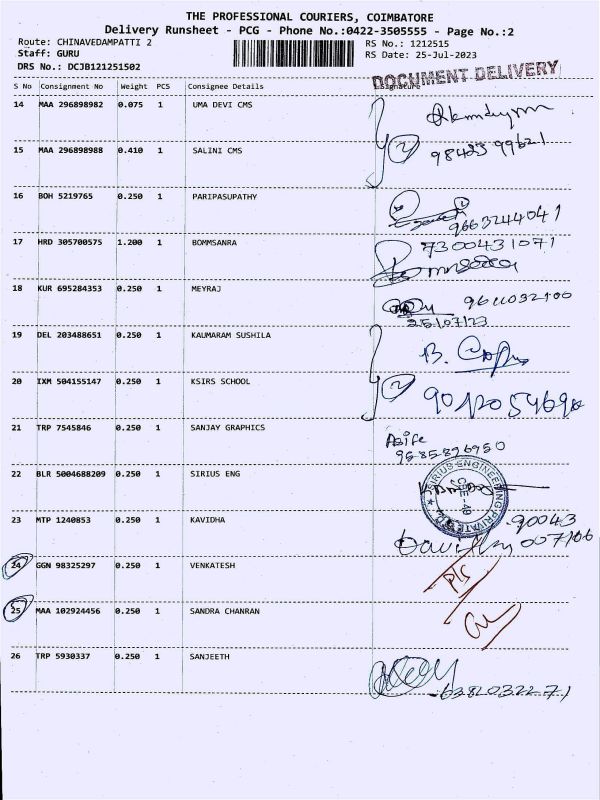 THE PROFESSIONAL COURIERS, COIMBATORE
Delivery Runsheet - PCG - Phone No.:0422-3505555 - Page No.:2
Route: CHINAVEDAMPATTI 2 RS No.: 1212515
Staff: GURU RS Date: 25-Jul-2023
DRS No.: DCJB121251502
DOCUMENT DELIVERY
S No Consignment No Weight PCS Consignee Details Signature
14 MAA 296898982 0.075 1 UMA DEVI CMS
15 MAA 296898988 0.410 1 SALINI CMS 2
16 BOH 5219765 0.250 1 PARIPASUPATHY
9663244041
17 HRD 305700575 1.200 1 BOMMSANRA 7300431071
18 KUR 695284353 0.250 1 MEYRAJ 9611032100
25/07/23
19 DEL 203488651 0.250 1 KAUMARAM SUSHILA
20 IXM 504155147 0.250 1 KSIRS SCHOOL 2
21 TRP 7545846 0.250 1 SANJAY GRAPHICS
9585896950
22 BLR 5004688209 0.250 1 SIRIUS ENG
SIRIUS ENGINEERING PRIVATE
CBE-49
23 MTP 1240853 0.250 1 KAVIDHA 90043
007106
24 GGN 98325297 0.250 1 VENKATESH
25 MAA 102924456 0.250 1 SANDRA CHANRAN
26 TRP 5930337 0.250 1 SANJEETH
6382032271